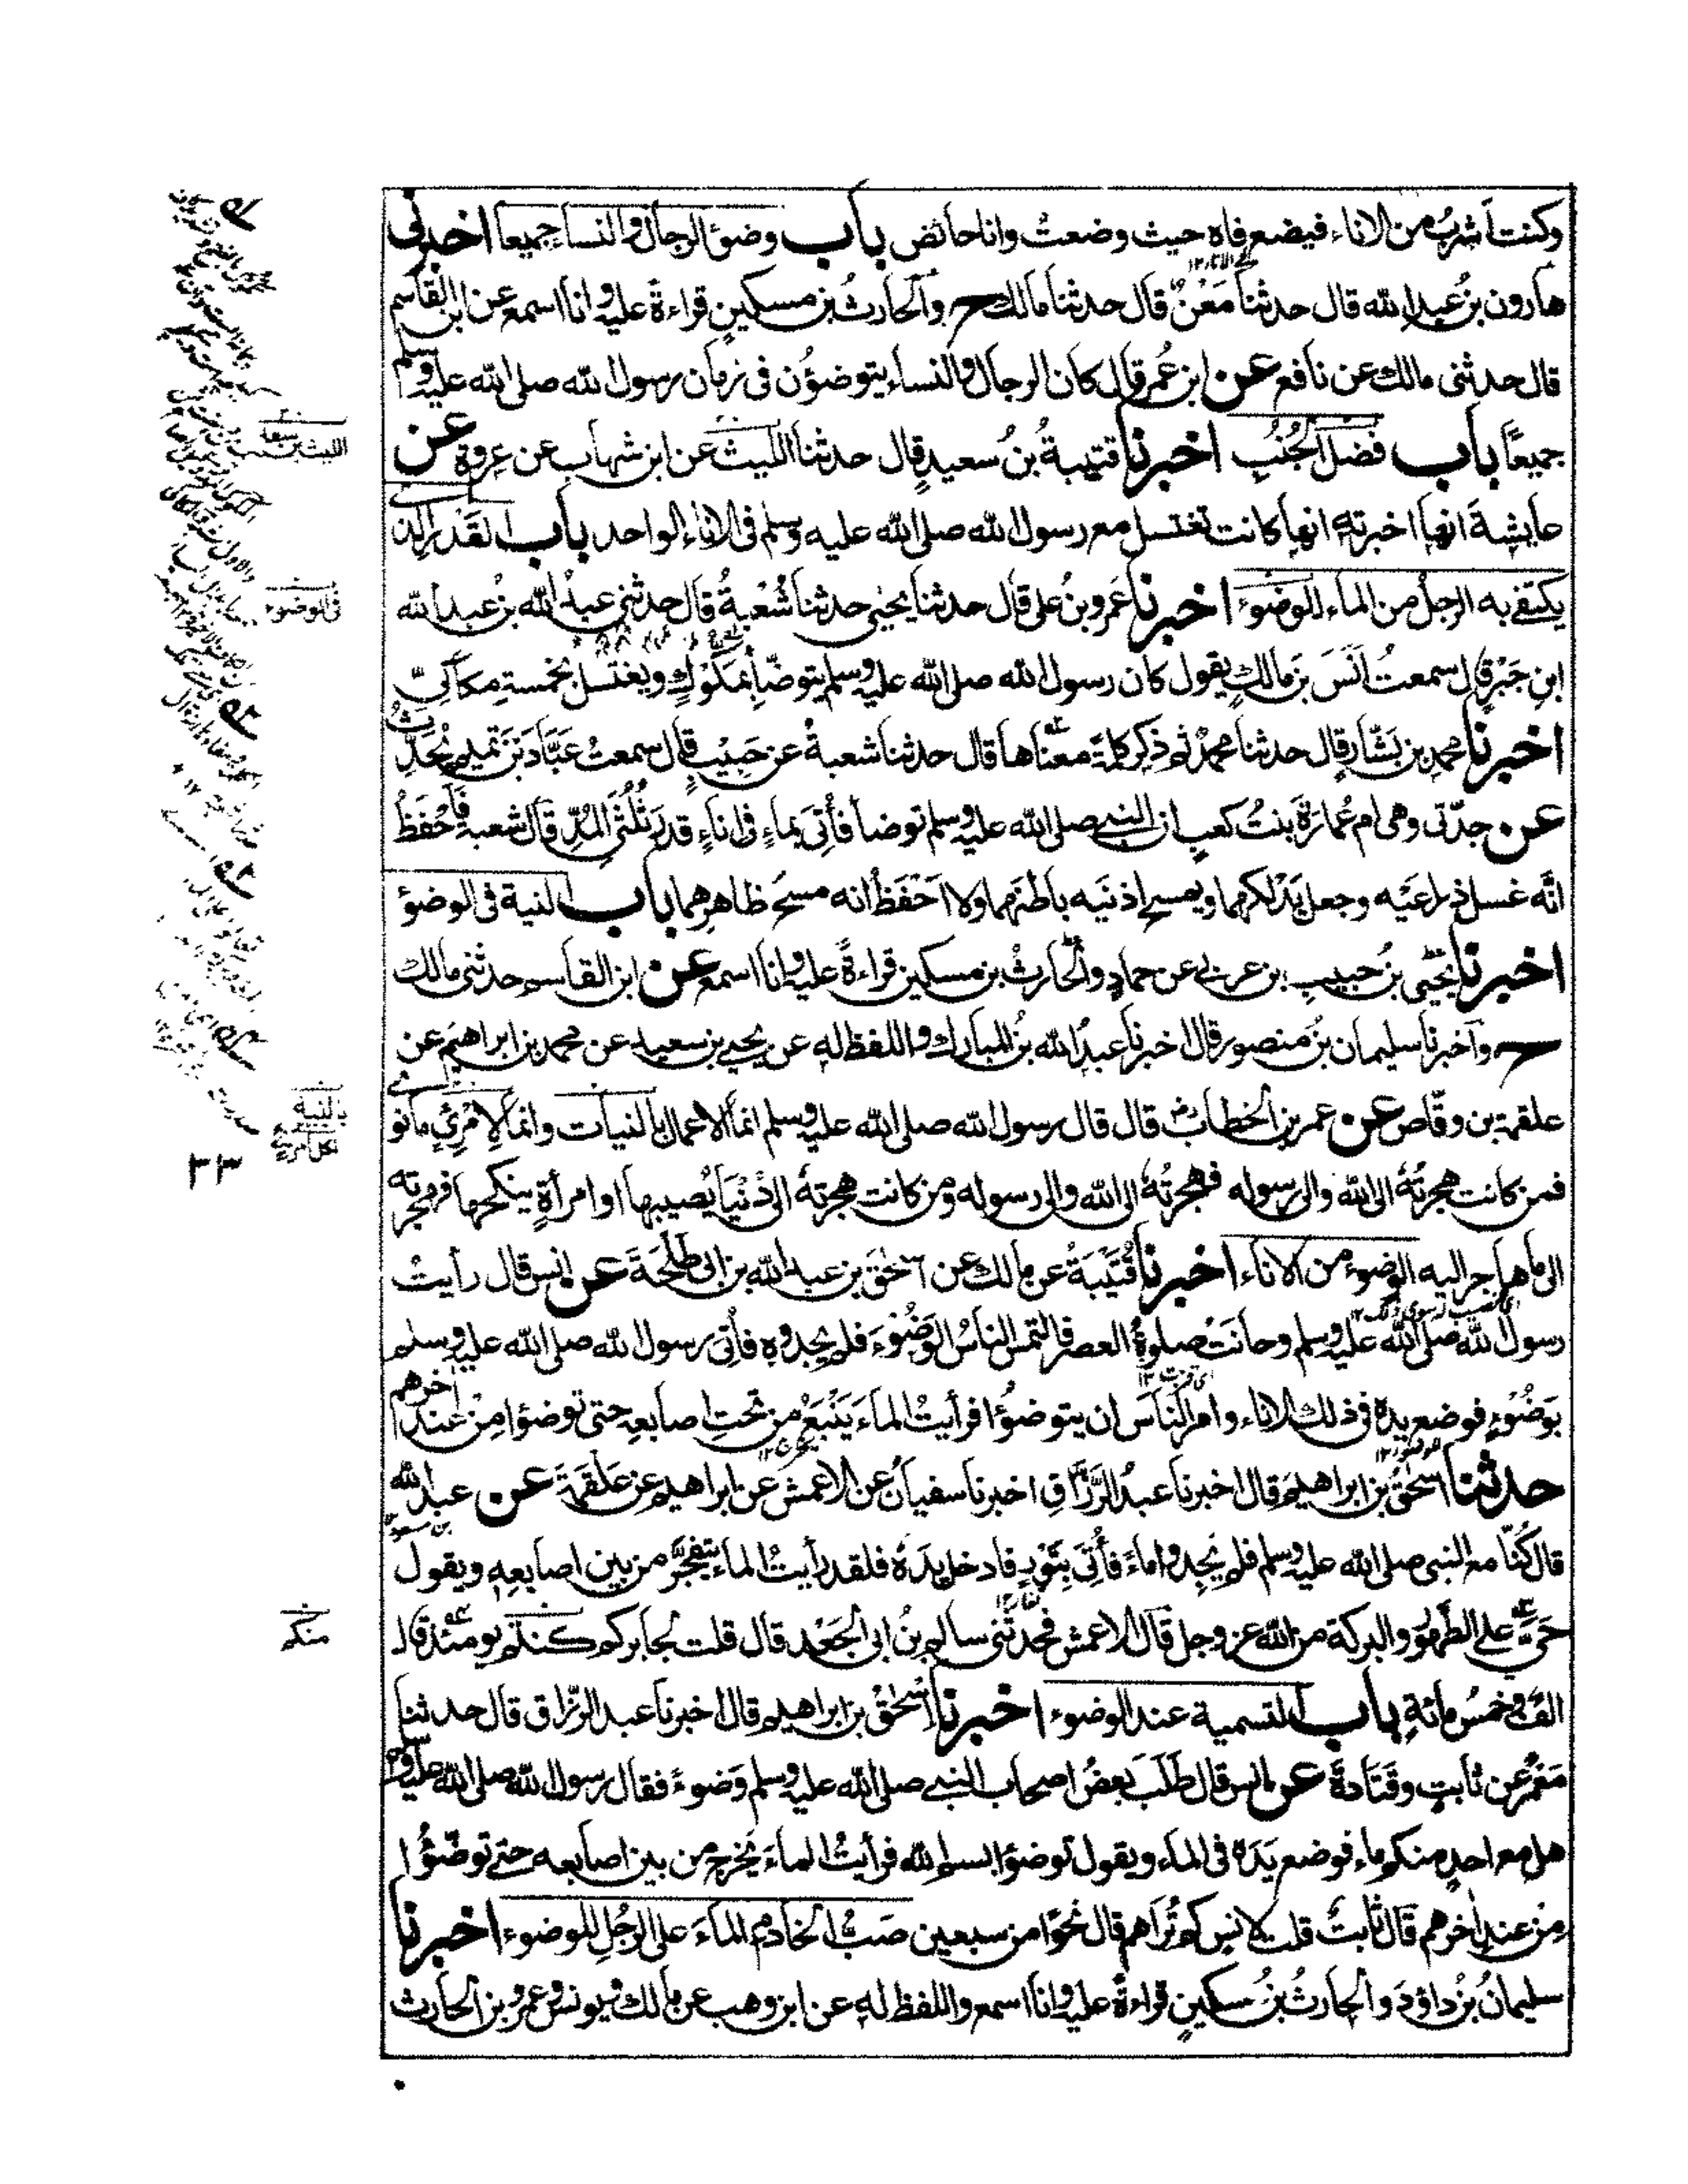 وكنت أشرب من الاناء فيضع فاه حيث وضعت وانا حائض باب وضوء الرجال والنساء جميعا اخبرني
هارون بن عبد الله قال حدثنا مَعْنٌ قال حدثنا مالك ح والحارثُ بن مسكينٍ قراءةً عليه وانا اسمع عن ابن القاسم
قال حدثنى مالك عن نافع عن ابن عُمر قال كان الرجال والنساء يتوضؤن فى زمان رسول الله صلى الله عليه وسلم
جميعًا باب فضل الجُنُبِ اخبرنا قتيبةُ بنُ سعيدٍ قال حدثنا الليث عن ابن شهاب عن عروة عن
عايشةَ انها اخبرته انها كانت تغتسل مع رسول الله صلى الله عليه وسلم فى الاناء الواحد باب القَدْر الذى
يكتفى به الرجلُ من الماء للوضوء اخبرنا عَمرو بنُ على قال حدثنا يحيى حدثنا شُعْبةُ قال حدثنى عبد الله بنُ عبد الله
ابنِ جَبْرٍ قال سمعتُ اَنَسَ بنَ مالكٍ يقول كان رسول الله صلى الله عليه وسلم يتوضّأ بمَكُّوكٍ ويغتسل بخمسةِ مكاكىَّ
اخبرنا محمد بن بَشّارٍ قال حدثنا محمدٌ ثم ذكر كلمةً معناها قال حدثنا شعبةُ عن حَبِيْبٍ قال سمعتُ عَبَّادَ بنَ تميمٍ يُحَدِّثُ
عن جدّتى وهى ام عُمارةَ بنتُ كعبٍ ان النبى صلى الله عليه وسلم توضا فأُتِىَ بماءٍ فى اناءٍ قدر ثُلُثَىِ المُدِّ قال شعبة فاَحْفَظُ
انَّه غسل ذراعَيْه وجعل يَدْلكهما ويمسح اذنَيه باطنَهما ولا اَحْفَظُ انه مسحَ ظاهرهما باب النية فى الوضوء
اخبرنا يحيى بنُ حبيبِ بن عربى عن حمادٍ والحارثُ بن مسكين قراءةً عليه وانا اسمع عن ابن القاسم حدثنى مالك
ح واخبرنا سليمان بنُ منصور قال اخبرنا عبدُ الله بنُ المبارك واللفظ له عن يحيى بن سعيد عن محمد بن ابراهيمَ عن
علقمة بن وقّاص عن عمر بن الخطاب رض قال قال رسول الله صلى الله عليه وسلم انما الاعمال بالنيات وانما لاِمْرِئٍ ما نوى
فمن كانت هجرتُهُ الى الله والى رسوله فهجرتُهُ الى الله والى رسوله ومن كانت هجرتهُ الى دُنْيَا يُصيبها او امرأةٍ ينكحها فهجرته
الى ما هاجر اليه الوضوء من الاناء اخبرنا قُتَيْبَةُ عن مالك عن اسحٰق بن عبد الله بن ابى طَلْحَةَ عن انس قال رأيتُ
رسول الله صلى الله عليه وسلم وحانَتْ صلوةُ العصر فالتمس الناسُ الوَضُوْءَ فلم يجدوه فأُتى رسول الله صلى الله عليه وسلم
بوَضُوْءٍ فوضع يده فى ذلك الاناء وامر الناسَ ان يتوضؤا فرأيتُ الماءَ يَنْبَعُ من تحتِ اصابعِه حتى توضؤا مِنْ عند اٰخرهم
حدثنا اسحٰقُ بن ابراهيم قال اخبرنا عبدُ الرَّزَّاقِ اخبرنا سفيانُ عن الاعمش عن ابراهيم عن عَلْقَمَةَ عن عبد الله
قال كُنَّا مع النبى صلى الله عليه وسلم فلم يَجِدوا ماءً فأُتِىَ بتَوْرٍ فادخل يدَهُ فلقد رأيتُ الماء يَتفجّرُ من بين اصابعِهِ ويقول
حَىَّ على الطَّهور والبركة من الله عز وجل قال الاعمش فحدثَنى سالم بنُ ابى الجَعْد قال قلت لجابر كم كنتم يومئذ قال
الفٌ وخمسُ مائةٍ باب التسمية عند الوضوء اخبرنا اسحٰقُ بن ابراهيم قال اخبرنا عبد الرّزاق قال حدثنا
مَعْمَرٌ عن ثابتٍ وقَتَادةَ عن انس قال طَلَبَ بعضُ اصحاب النبى صلى الله عليه وسلم وَضوءً فقال رسول الله صلى الله عليه وسلم
هل مع احدٍ منكم ماء فوضع يَدَهُ فى الماء ويقول توضؤا بسم الله فرأيتُ الماءَ يَخرج من بين اصابعه حتى توضّؤُا
مِنْ عندِ اٰخرهم قال ثابتٌ قلت لانس كم تُراهم قال نحوًا من سبعين صَبُّ الخادمِ الماءَ على الرجُلِ للوضوء اخبرنا
سليمانُ بنُ داؤدَ والحارثُ بنُ مسكينٍ قراءةً عليه وانا اسمع واللفظ له عن ابن وهب عن مالك ويونس وعمرو بن الحارث
الليث بن سعد
فى الوضوء
بالنية
لكل امرئ
٣٣
منكم